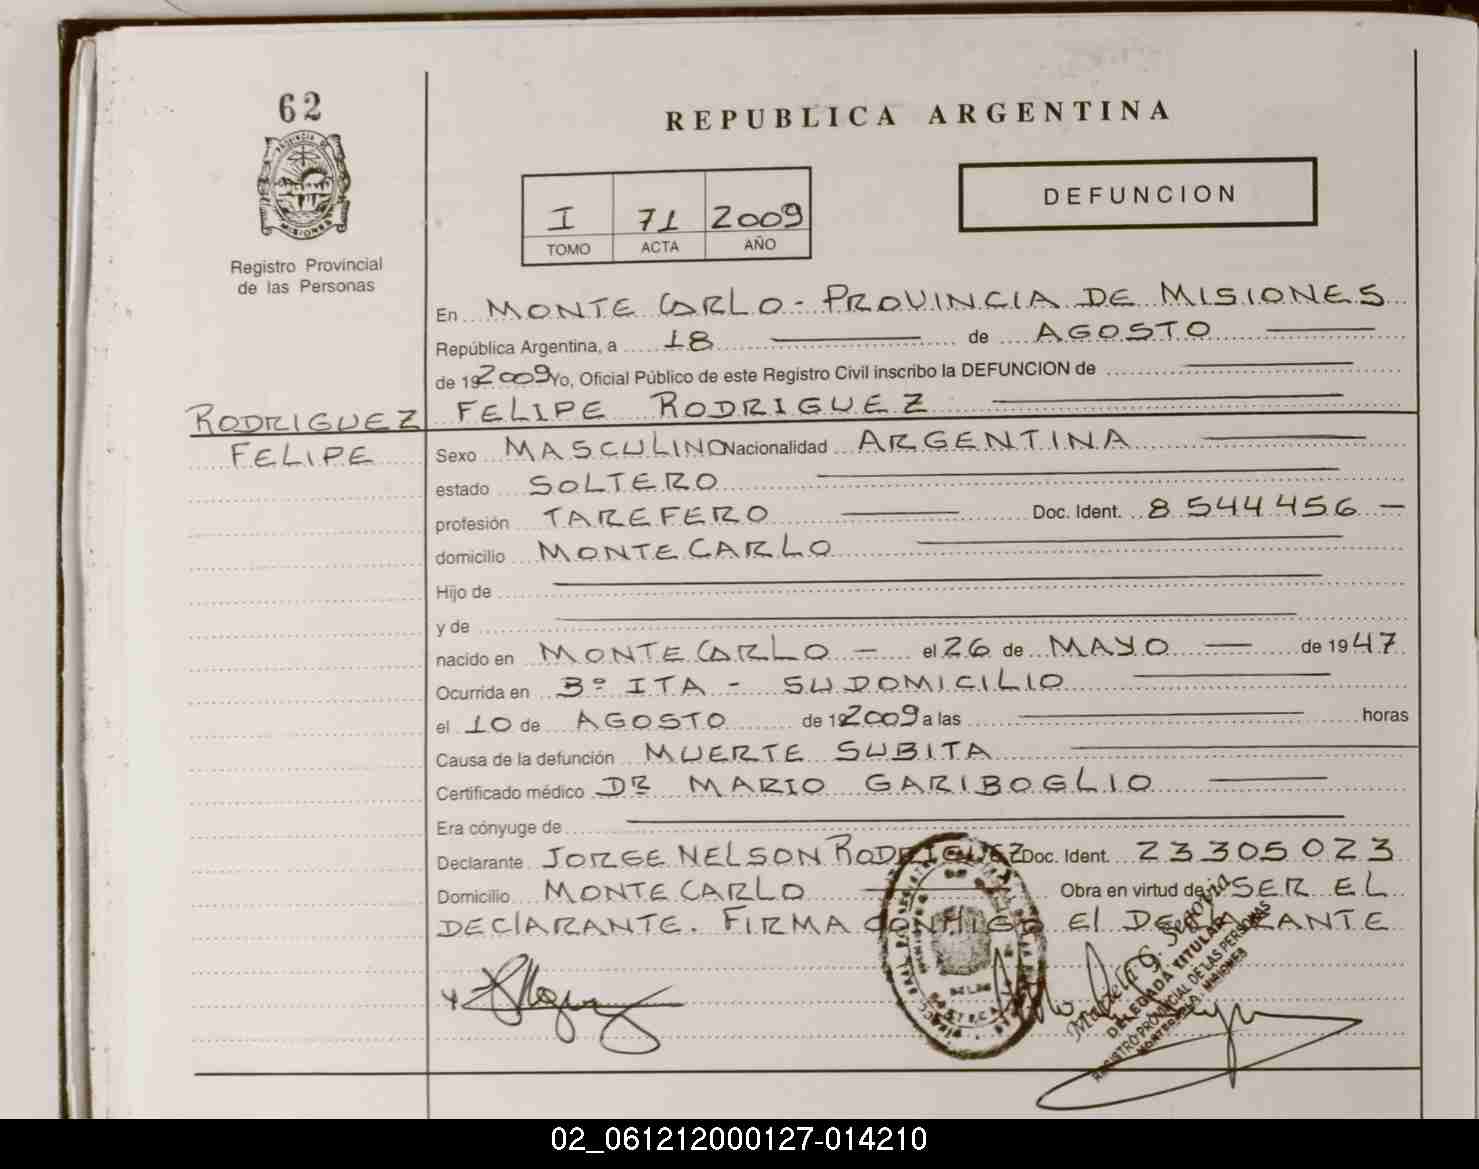 62
PROVINCIA DE
MISIONES
Registro Provincial
de las Personas
REPUBLICA ARGENTINA
I 71 2009
TOMO ACTA AÑO
DEFUNCION
En MONTE CARLO - PROVINCIA DE MISIONES
República Argentina, a 18 de AGOSTO
de 19 2009 Yo, Oficial Público de este Registro Civil inscribo la DEFUNCION de
RODRIGUEZ FELIPE RODRIGUEZ
FELIPE Sexo MASCULINO Nacionalidad ARGENTINA
estado SOLTERO
profesión TAREFERO Doc. Ident. 8 544 456 -
domicilio MONTE CARLO
Hijo de
y de
nacido en MONTE CARLO - el 26 de MAYO - de 19 47
Ocurrida en 3º ITA - SU DOMICILIO
el 10 de AGOSTO de 19 2009 a las horas
Causa de la defunción MUERTE SUBITA
Certificado médico DR MARIO GARIBOGLIO
Era cónyuge de
Declarante JORGE NELSON RODRIGUEZ Doc. Ident. 23305023
Domicilio MONTE CARLO Obra en virtud de SER EL
DECLARANTE. FIRMA CONMIGO El DECLARANTE
G. Segovia
DELEGADA TITULAR
REGISTRO PROVINCIAL DE LAS PERSONAS
MISIONES
02_061212000127-014210